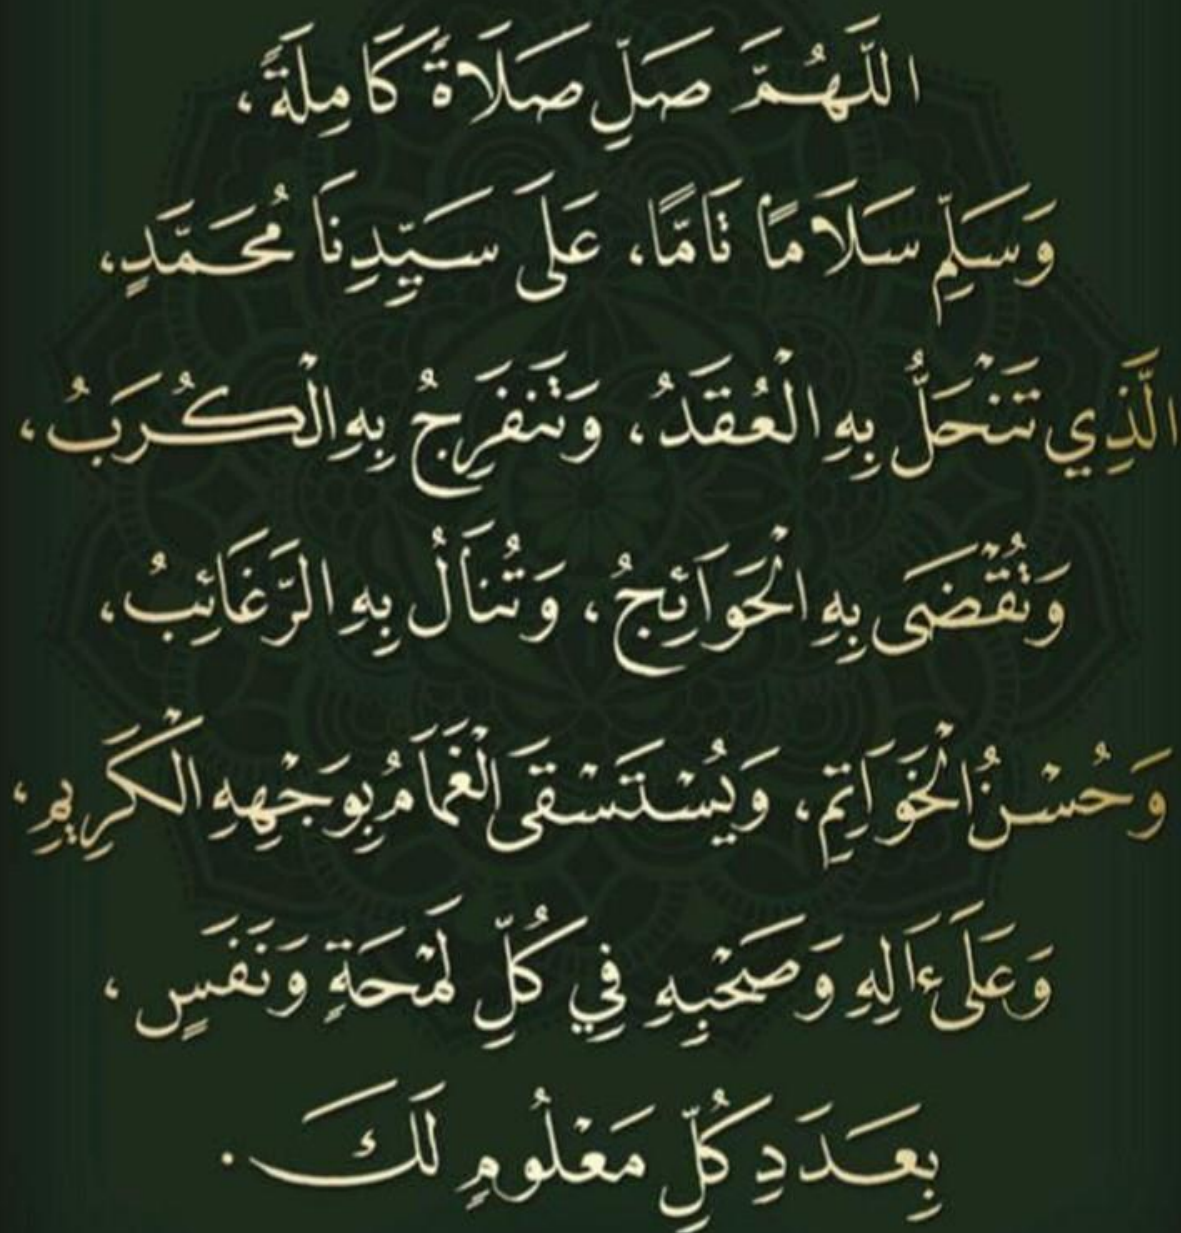 اللَّهُمَّ صَلِّ صَلَاةً كَامِلَةً،
وَسَلِّمْ سَلَامًا تَامًّا، عَلَى سَيِّدِنَا مُحَمَّدٍ،
الَّذِي تَنْحَلُّ بِهِ الْعُقَدُ، وَتَنفَرِجُ بِهِ الْكُرَبُ،
وَتُقْضَى بِهِ الْحَوَائِجُ، وَتُنَالُ بِهِ الرَّغَائِبُ،
وَحُسْنُ الْخَوَاتِمِ، وَيُسْتَسْقَى الْغَمَامُ بِوَجْهِهِ الْكَرِيمِ،
وَعَلَى ءَالِهِ وَصَحْبِهِ فِي كُلِّ لَمْحَةٍ وَنَفَسٍ،
بِعَدَدِ كُلِّ مَعْلُومٍ لَكَ.